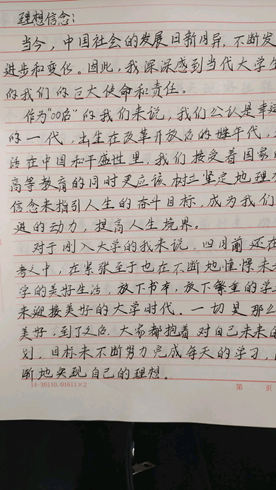 理想信念:
当今，中国社会的发展日新月异，不断发
进步和变化。因此，我深深感到当代大学生
的我们的巨大使命和责任。
作为“00后”的我们来说，我们公认是幸运
的一代，出生在改革开放后的
活在中国和平盛世里，我们接受着国家的
高等教育的同时更应该树立坚定地理想
信念来指引人生的奋斗目标，成为我们
进的动力，提高人生境界。
对于刚入大学的我来说，四月前还在
考人中，在紧张至于也在不断地憧憬未
学的美好生活，放下书本，放下繁重的学
来迎接美好的大学时代。一切是那么
美好，到了之后，大家都抱着对自己未来的
划，目标来不断努力完成每天的学习，
断地实现自己的理想。
第 页